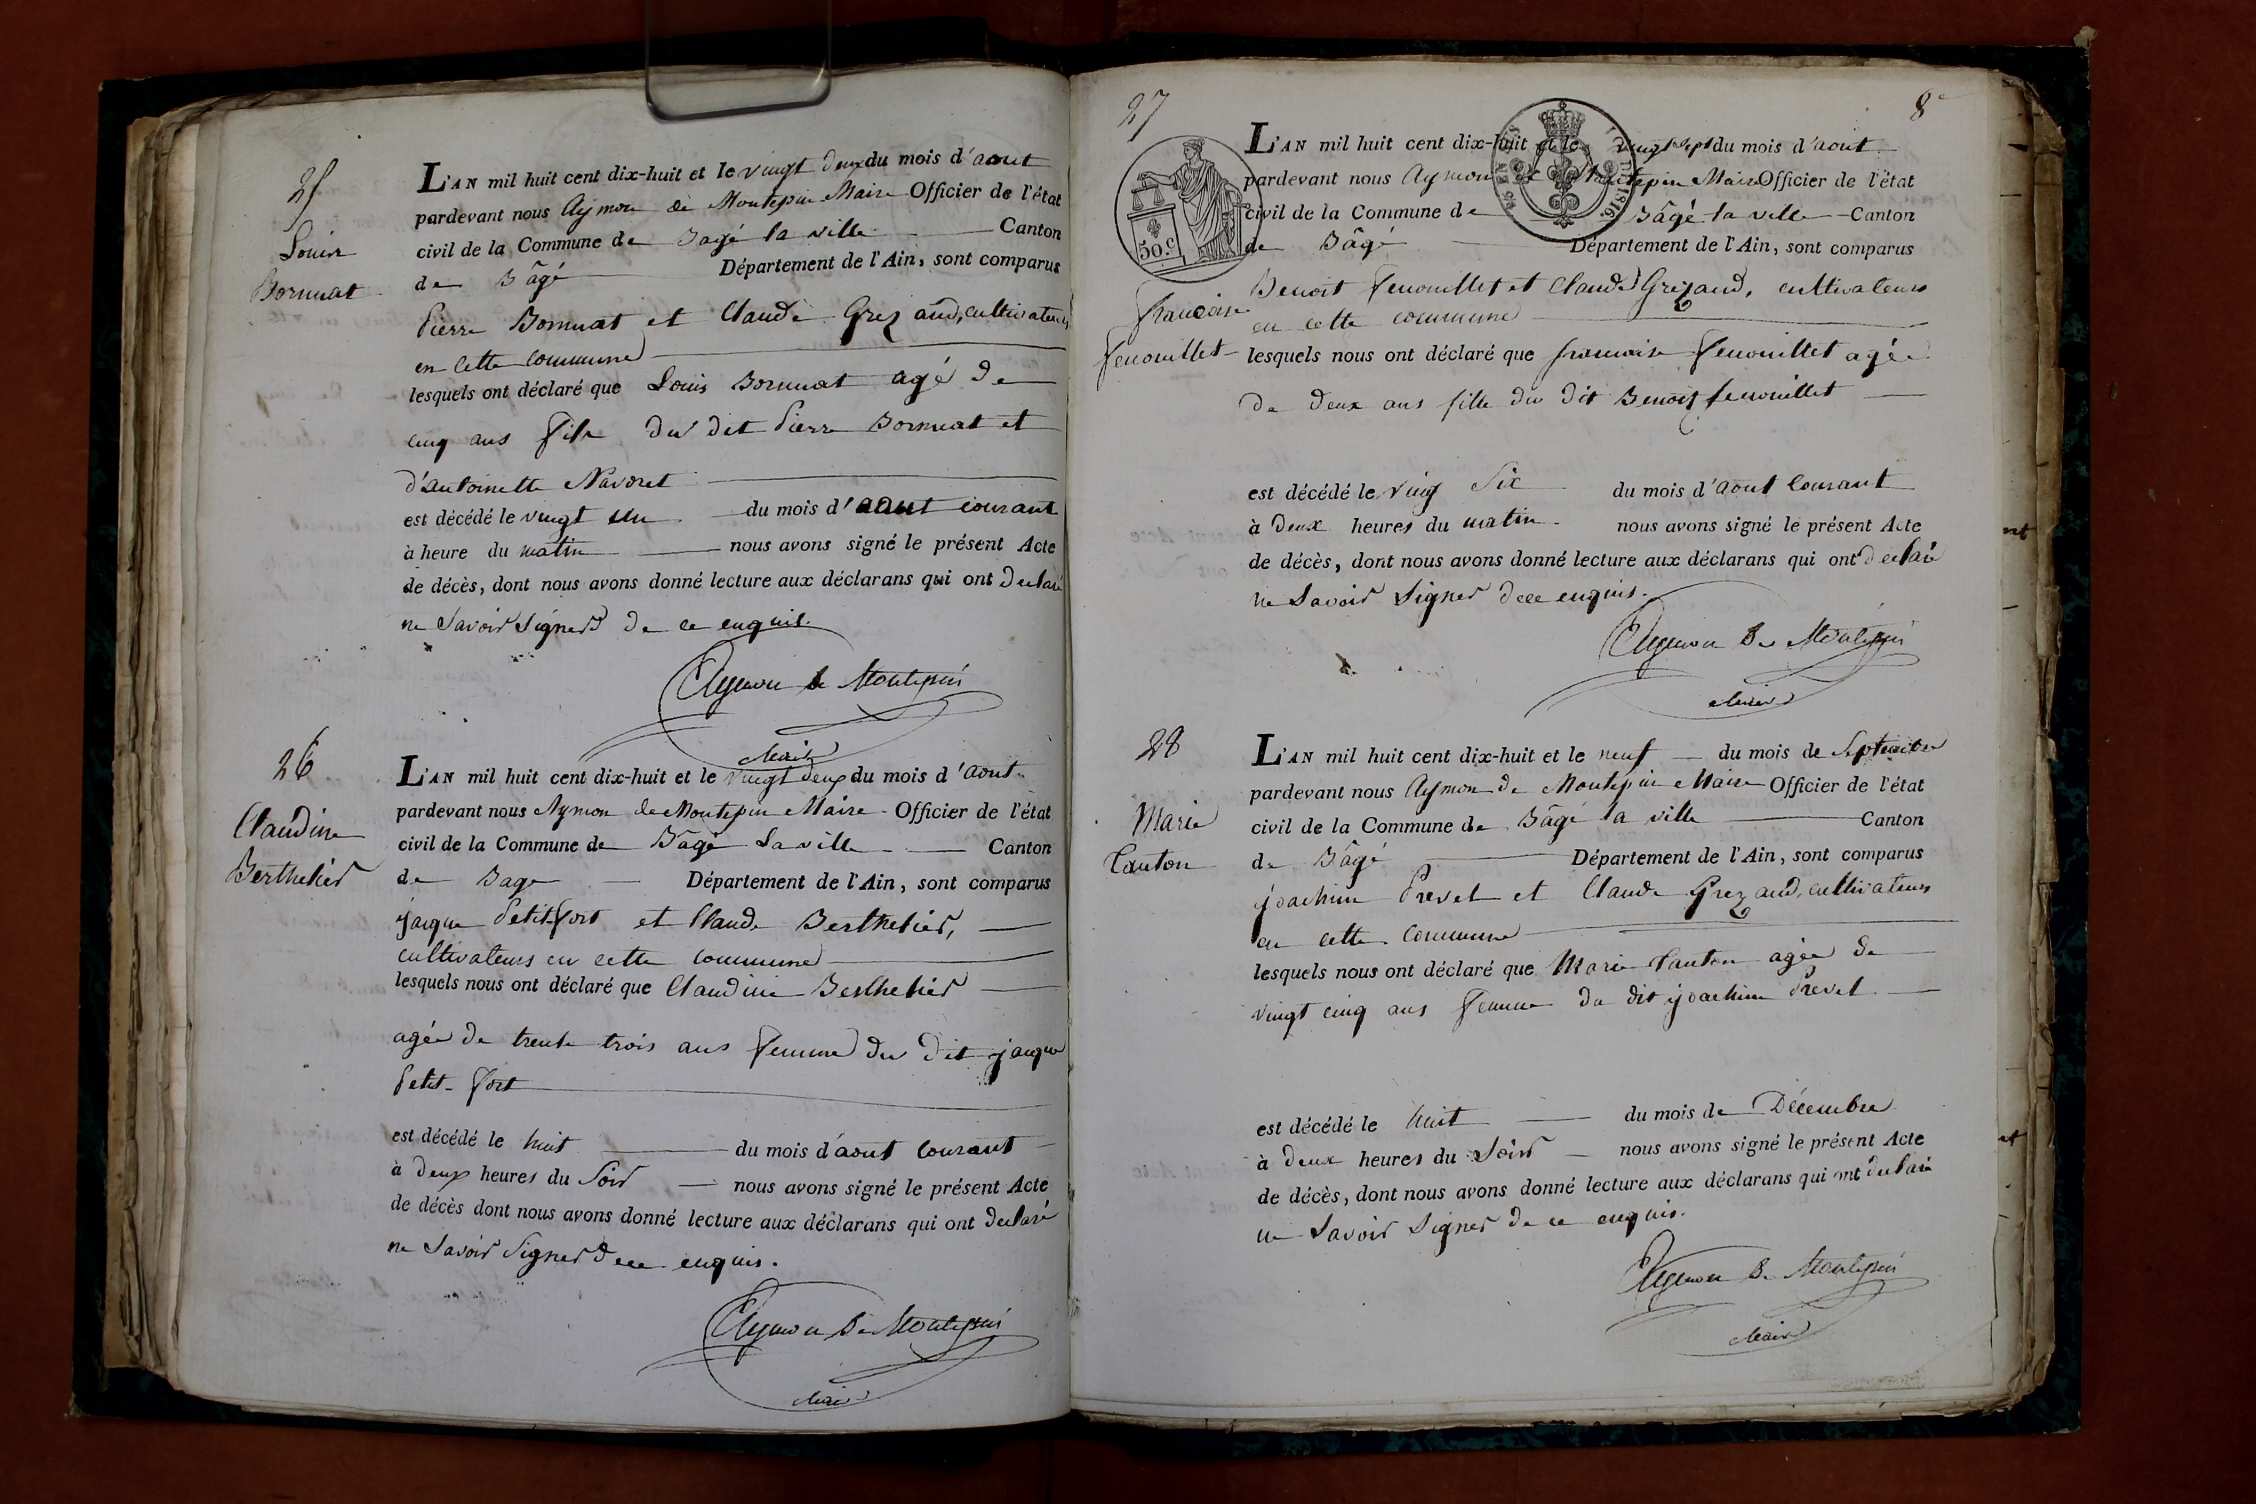 25
Louis
Bornuat
L'AN mil huit cent dix-huit et le vingt deux du mois d'aout
pardevant nous Aymon de Montepin Maire Officier de l'état
civil de la Commune de Bagé la ville Canton
de Bâgé Département de l'Ain, sont comparus
Pierre Bornuat et Claude Grezaud, cultivateurs
en cette commune
lesquels ont déclaré que Louis Bornuat agé de
cinq ans fils du dit Pierre Bornuat et
d'antoinette Navoret
est décédé le vingt un du mois d'aout courant
à heure du matin nous avons signé le présent Acte
de décès, dont nous avons donné lecture aux déclarans qui ont declaré
ne Savoir Signer de ce enquis.
Aymon de Montepin
Maire
26
Claudine
Berthelier
L'AN mil huit cent dix-huit et le vingt deux du mois d'aout
pardevant nous Aymon de Montepin Maire Officier de l'état
civil de la Commune de Bâgé La ville Canton
de Bage Département de l'Ain, sont comparus
jaque Petit-fort et Claude Berthelier,
cultivateurs en cette commune
lesquels nous ont déclaré que Claudine Berthelier
agée de trente trois ans femme du dit jaque
Petit-fort
est décédé le huit du mois d'aout courant
à deux heures du Soir nous avons signé le présent Acte
de décès dont nous avons donné lecture aux déclarans qui ont declaré
ne Savoir Signer de ce enquis.
Aymon de Montepin
Maire
27
8e
50.c
1816.
françoise
fenouillet
L'AN mil huit cent dix-huit et le vingt sept du mois d'aout
pardevant nous Aymon de Montepin Maire Officier de l'état
civil de la Commune de Bâgé la ville Canton
de Bâgé Département de l'Ain, sont comparus
Benoit fenouillet et Claude Grezaud, cultivateurs
en cette commune
lesquels nous ont déclaré que francoise fenouillet agée
de deux ans fille du dit Benoit fenouillet
est décédé le ving Six du mois d'aout courant
à deux heures du matin nous avons signé le présent Acte
de décès, dont nous avons donné lecture aux déclarans qui ont declaré
ne Savoir Signer de ce enquis.
Aymon de Montepin
Maire
28
Marie
Canton
L'AN mil huit cent dix-huit et le neuf du mois de Septembre
pardevant nous Aymon de Montepin Maire Officier de l'état
civil de la Commune de Bâgé la ville Canton
de Bâgé Département de l'Ain, sont comparus
joachim Prevel et Claude Grezaud, cultivateurs
en cette commune
lesquels nous ont déclaré que Marie Canton agée de
vingt cinq ans femme du dit joachim Prevel
est décédé le huit du mois de Décembre
à deux heures du Soir nous avons signé le présent Acte
de décès, dont nous avons donné lecture aux déclarans qui ont declaré
ne Savoir Signer de ce enquis.
Aymon de Montepin
Maire